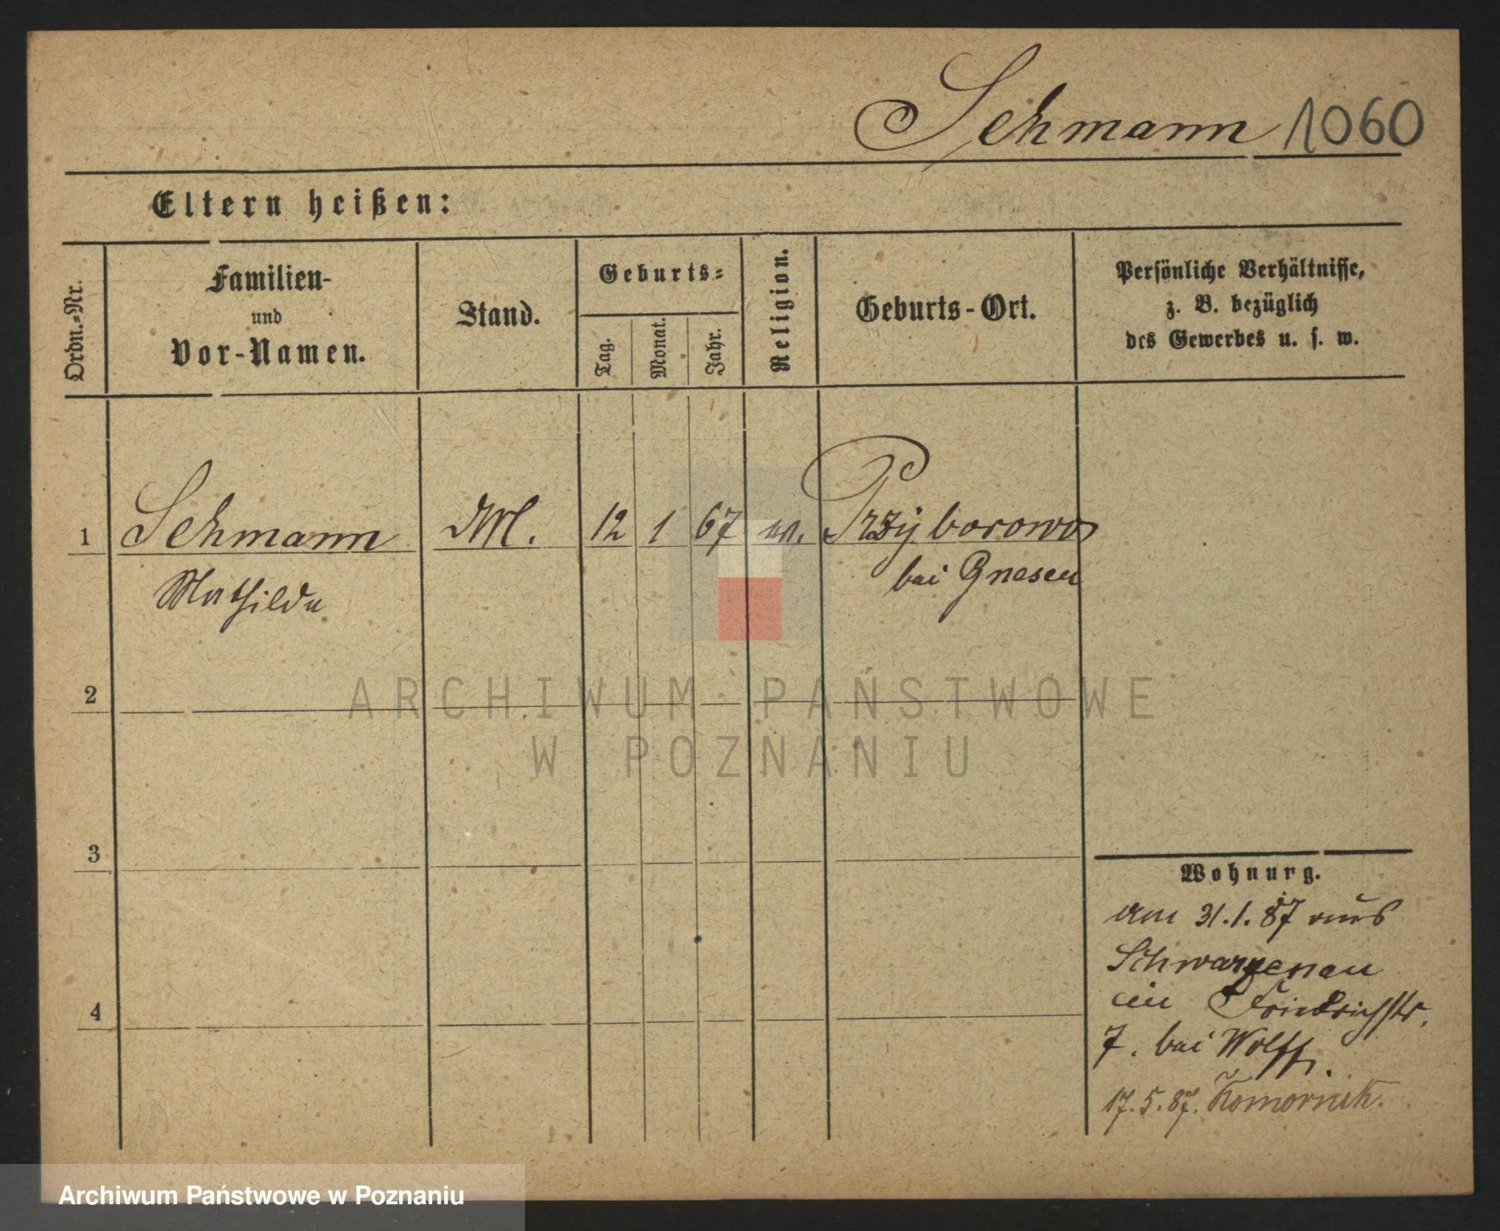 Sehmann 1060
Eltern heißen:
Ordn.-Nr.
Familien-
und
Vor-Namen.
Stand.
Geburts-
Tag.
Monat.
Jahr.
Religion.
Geburts-Ort.
Persönliche Verhältnisse,
z. B. bezüglich
des Gewerbes u. s. w.
1 Sehmann 12 1 67 ev. Przyborowo
Mathilde bei Gnesen
2
3
4
Wohnung.
am 31.1.87 aus
Schwarzenau
in Friedrichstr.
7. bei Wolff.
17.5.87. Komornik.
ARCHIWUM PAŃSTWOWE
W POZNANIU
Archiwum Państwowe w Poznaniu